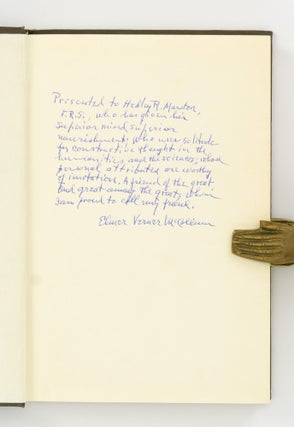 Presented to Hedley R. Marston,
F.R.S., who has given his
superior mind superior
nourishment. Who uses solitude
for constructive thought in the
humanities and the sciences, whose
personal attributes are worthy
of imitation. A friend of the great,
and great among the great, whom
I am proud to call my friend.
Elmer Verner McCollum